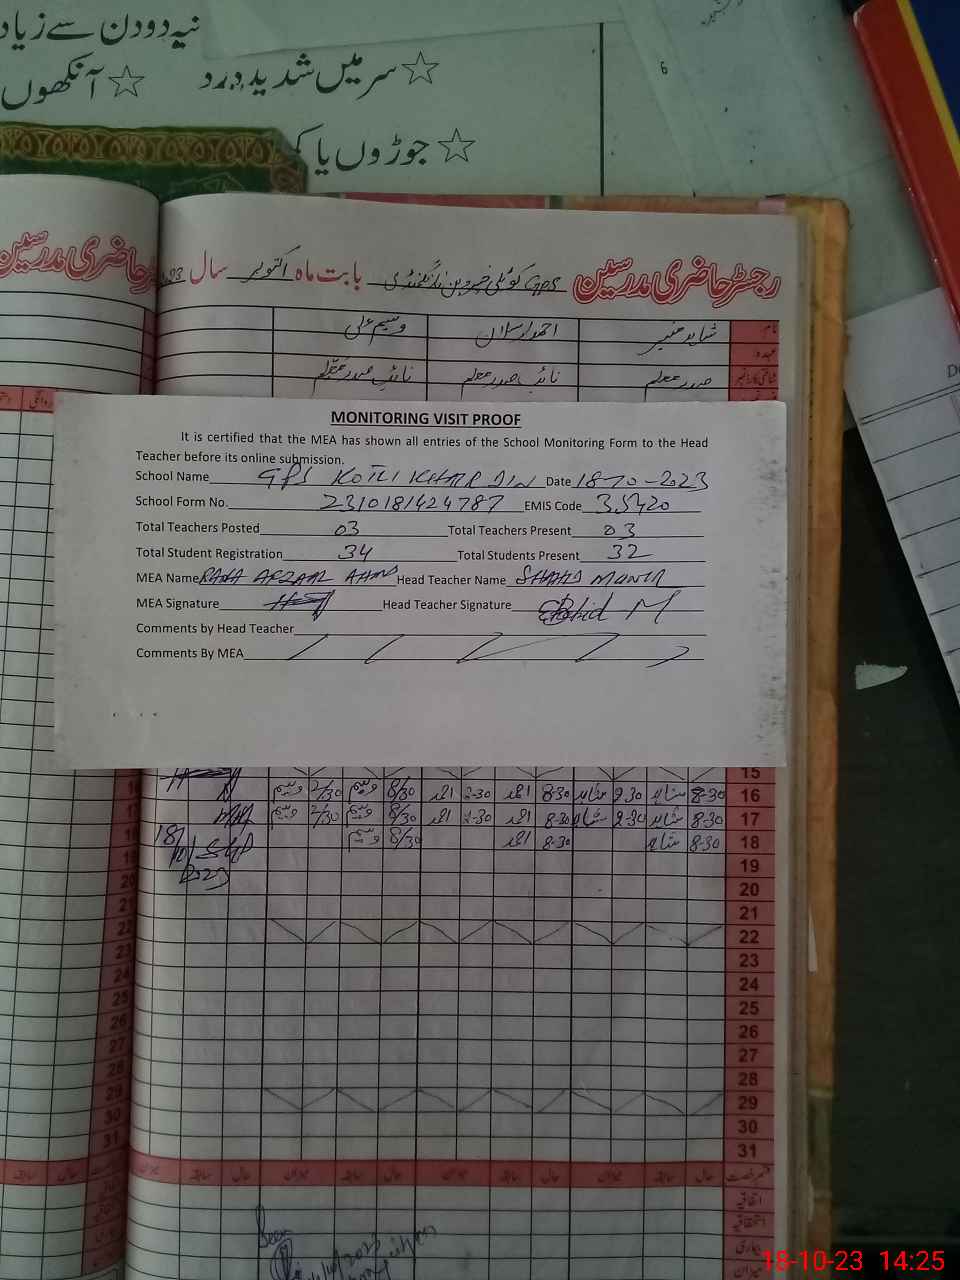 نیہ دو دن سے زیاد
☆ سر میں شدید درد ☆ آنکھوں
☆ جوڑوں یا
6
رجسٹر حاضری مدرسین GPS بابت ماہ اکتوبر سال
نام شاہد منیر احمد ارسلان وسیم علی
عہدہ
صدر معلم نائب صدر معلم نائب صدر معلم
MONITORING VISIT PROOF
It is certified that the MEA has shown all entries of the School Monitoring Form to the Head
Teacher before its online submission.
School Name GPS KOTLI KHAIR DIN Date 18-10-2023
School Form No. 2310181424787 EMIS Code 35420
Total Teachers Posted 03 Total Teachers Present 03
Total Student Registration 34 Total Students Present 32
MEA Name RANA AFZAAL AHMD Head Teacher Name SHAHID MUNIR
MEA Signature Head Teacher Signature Shahid M
Comments by Head Teacher
Comments By MEA
15
16 8-30 شاہد 2-30 شاہد 8-30 احمد 2-30 احمد 8/30 وسیم 2/30 وسیم
17 8-30 شاہد 2-30 شاہد 8-30 احمد 2-30 احمد 8/30 وسیم 2/30 وسیم
18 8-30 شاہد 8-30 احمد 8/30 وسیم
18/10/2023
19
20
21
22
23
24
25
26
27
28
29
30
31
حال سابقہ میزان حال سابقہ میزان حال سابقہ میزان
اتفاقیہ
استحقاقیہ
بیماری
میزان
Seen
18-10-23 14:25